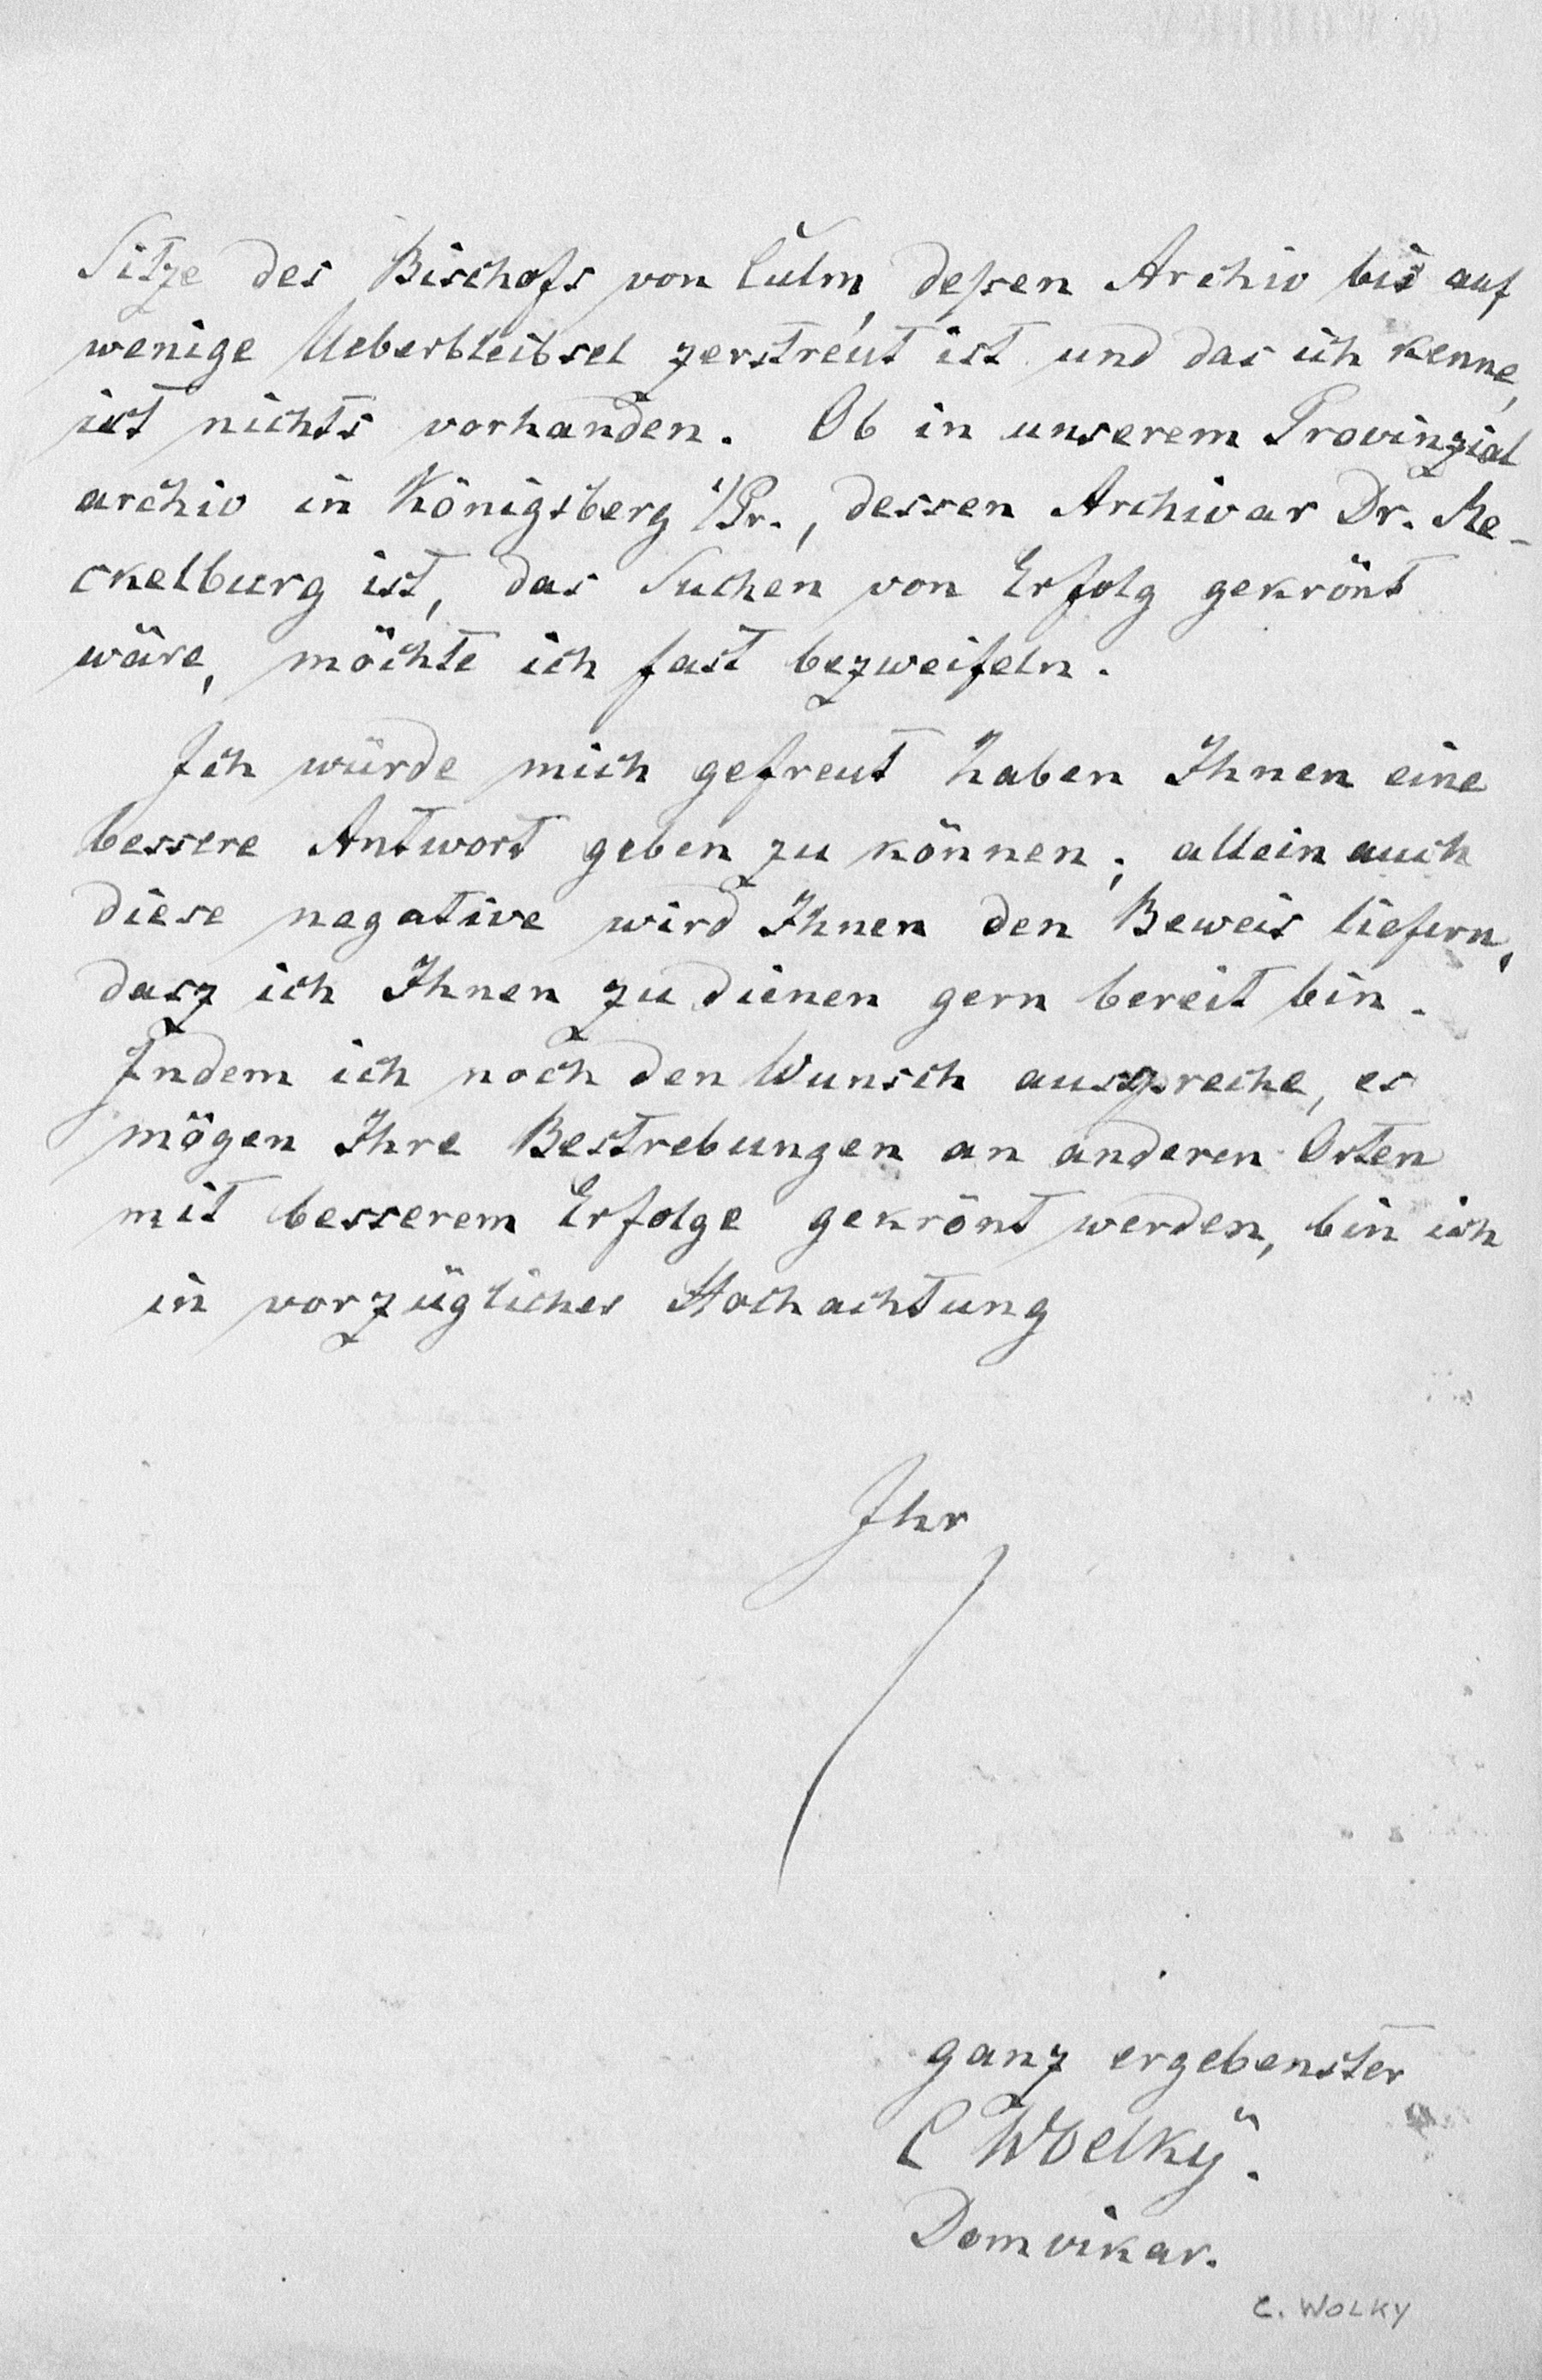 Sitze des Bischofs von Culm, deßen Archiv bis auf
wenige Ueberbleibsel zerstreut ist und das ich kenne,
ist nichts vorhanden. Ob in unserem Provinzial
archiv in Königsberg i/Pr., dessen Archivar Dr. Me-
ckelburg ist, das Suchen von Erfolg gekrönt
wäre, möchte ich fast bezweifeln.
Ich würde mich gefreut haben Ihnen eine
bessere Antwort geben zu können; allein auch
diese negative wird Ihnen den Beweis liefern,
dasz ich Ihnen zu dienen gern bereit bin.
Indem ich noch den Wunsch ausspreche, es
mögen Ihre Bestrebungen an anderen Orten
mit besserem Erfolge gekrönt werden, bin ich
in vorzüglicher Hochachtung
Ihr
ganz ergebenster
C Woelky.
Domvikar.
C. WOLKY